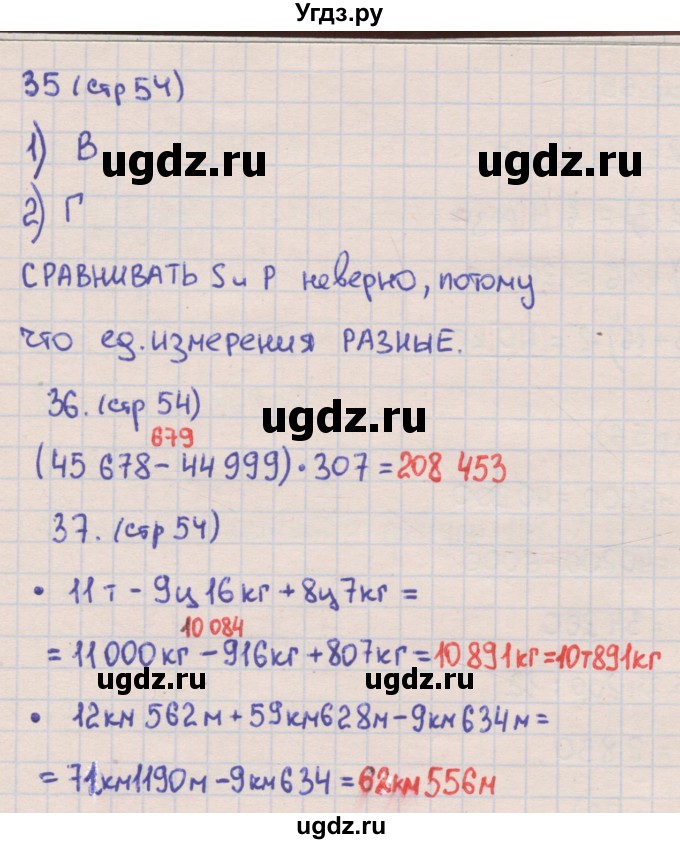 Угдз.ру
35 (стр 54)
1) В
ugdz.ru
2) Г
СРАВНИВАТЬ S и P неверно, потому
что ед. измерения РАЗНЫЕ.
36. (стр 54)
ugdz.ru
679
(45 678 - 44 999) • 307 = 208 453
37. (стр 54)
• 11т - 9ц 16кг + 8ц 7кг =
10 084
= 11 000кг - 916кг + 807кг = 10 891кг = 10т891кг
ugdz.ru ugdz.ru
• 12км 562м + 59км628м - 9км 634м =
= 71км1190м - 9км634 = 62км 556м
ugdz.ru